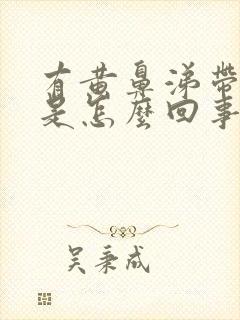 有黄鼻涕带
是怎麼回事
吴秉成